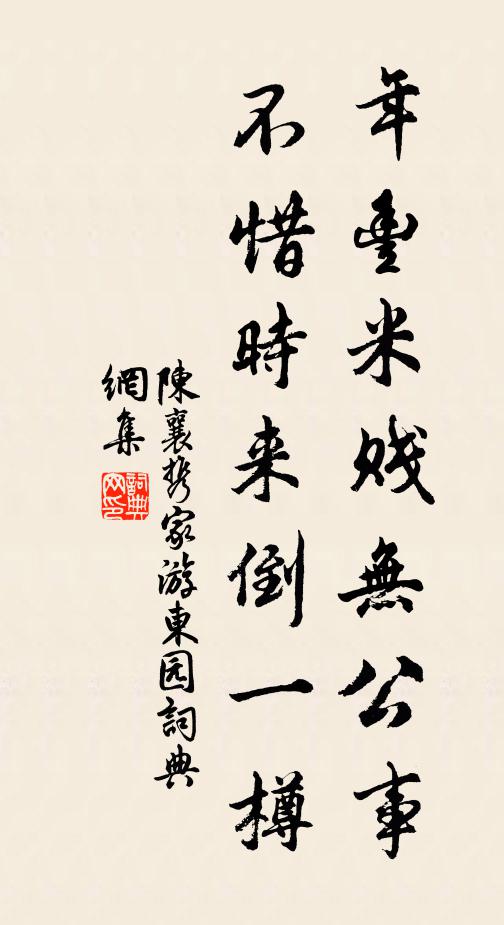 年豐米賤無公事
不惜時来倒一樽
陳襄携家游東园詞典
網集
詞典
网印